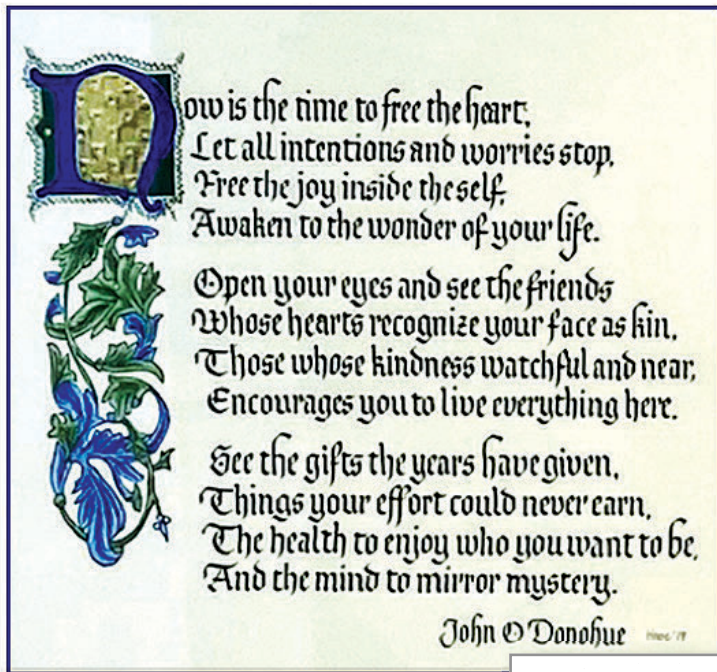 Now is the time to free the heart,
Let all intentions and worries stop,
Free the joy inside the self,
Awaken to the wonder of your life.
Open your eyes and see the friends
Whose hearts recognize your face as kin,
Those whose kindness watchful and near,
Encourages you to live everything here.
See the gifts the years have given,
Things your effort could never earn,
The health to enjoy who you want to be,
And the mind to mirror mystery.
John O'Donohue